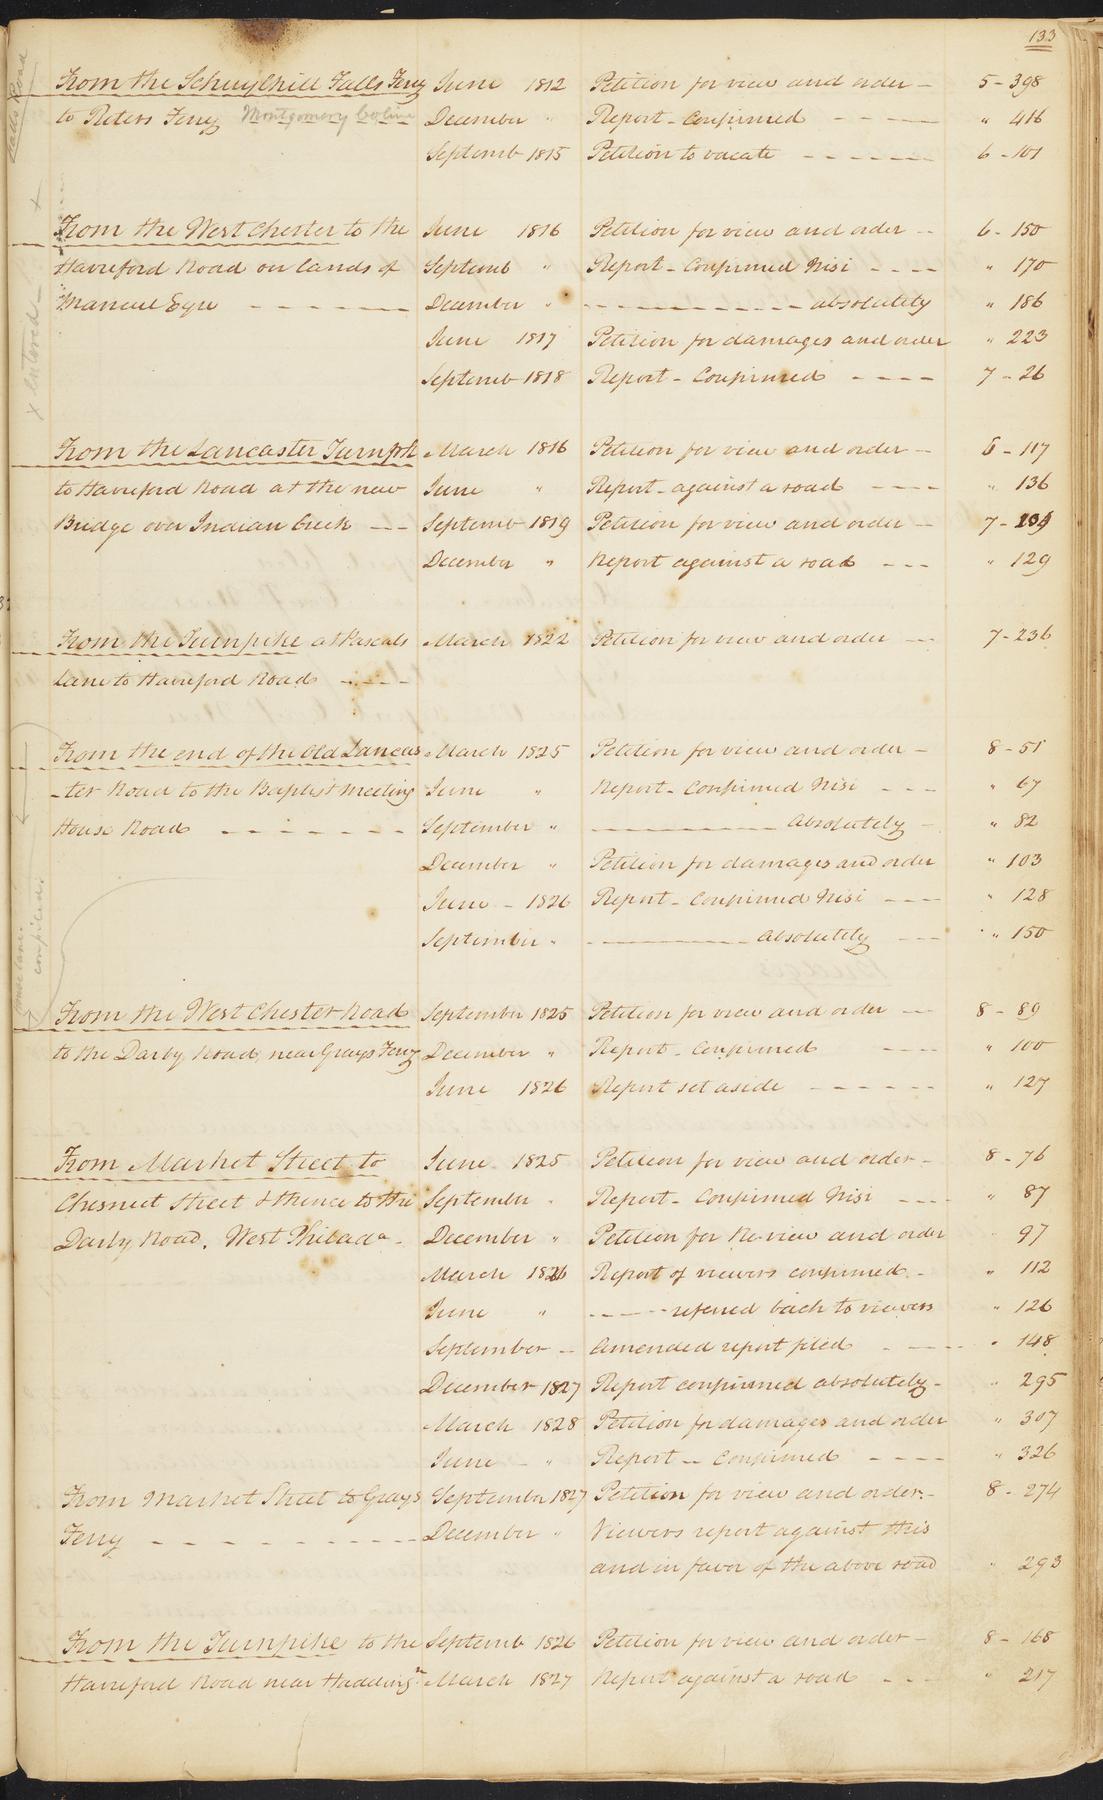 133
From the Schuylkill Falls Ferry June 1812 Petition for view and order - 5 - 398
to Peters Ferry Montgomery December " Report - Confirmed - - - - " 416
Septemb 1815 Petition to vacate - - - - - - 6 - 101
From the West Chester to the June 1816 Petition for view and order - - 6 - 150
Haverford Road on lands of Septemb " Report - Confirmed Nisi - - - - " 170
Manuel Eyre - - - - - - December " - - - - - - - - absolutely " 186
June 1817 Petition for damages and order " 223
Septemb 1818 Report - Confirmed - - - - 7 - 26
From the Lancaster Turnpk March 1816 Petition for view and order - 6 - 117
to Haverford Road at the new June " Report - against a road - - - - " 136
Bridge over Indian Creek - - - Septemb 1819 Petition for view and order - 7 -
December " Report against a road - - - " 129
From the Turnpike at Pascals March 1822 Petition for view and order - - 7 - 236
Lane to Haverford Road - - - -
From the end of the Old Lancas March 1825 Petition for view and order - 8 - 51
-ter Road to the Baptist Meeting June " Report - Confirmed Nisi - - - " 67
House Road - - - - - - - September " - - - - - - - - Absolutely - " 82
December " Petition for damages and order " 103
June - 1826 Report - Confirmed Nisi - - - " 128
September " - - - - - - - - Absolutely - - - " 150
From the West Chester Road September 1825 Petition for view and order - - 8 - 89
to the Darby Road, near Grays Ferry December " Report - Confirmed - - - " 100
June 1826 Report set aside - - - - - - " 127
From Market Street to June 1825 Petition for view and order - 8 - 76
Chesnut Street & thence to the September " Report - Confirmed Nisi - - - - " 87
Darby Road. West Philada - December " Petition for Re-view and order 97
March 1826 Report of viewers confirmed - " 112
June " - - - - - referred back to viewers " 126
September - - Amended report filed - - - - " 148
December 1827 Report confirmed absolutely - " 295
March 1828 Petition for damages and order " 307
June - " Report - Confirmed - - - - " 326
From Market Street to Grays September 1827 Petition for view and order - 8 - 274
Ferry - - - - - - - - - December " Viewers report against this
and in favor of the above road " 293
From the Turnpike to the Septemb 1826 Petition for view and order - 8 - 168
Haverford Road near Haddingn March 1827 Report against a road - - - " 217
Falls Road
x Entered - x
compiled.